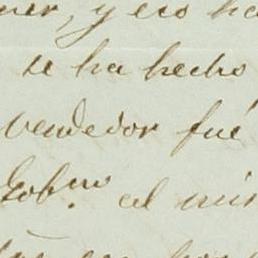 y eso ha
se ha hecho
vendedor fué
Gob.no al mis